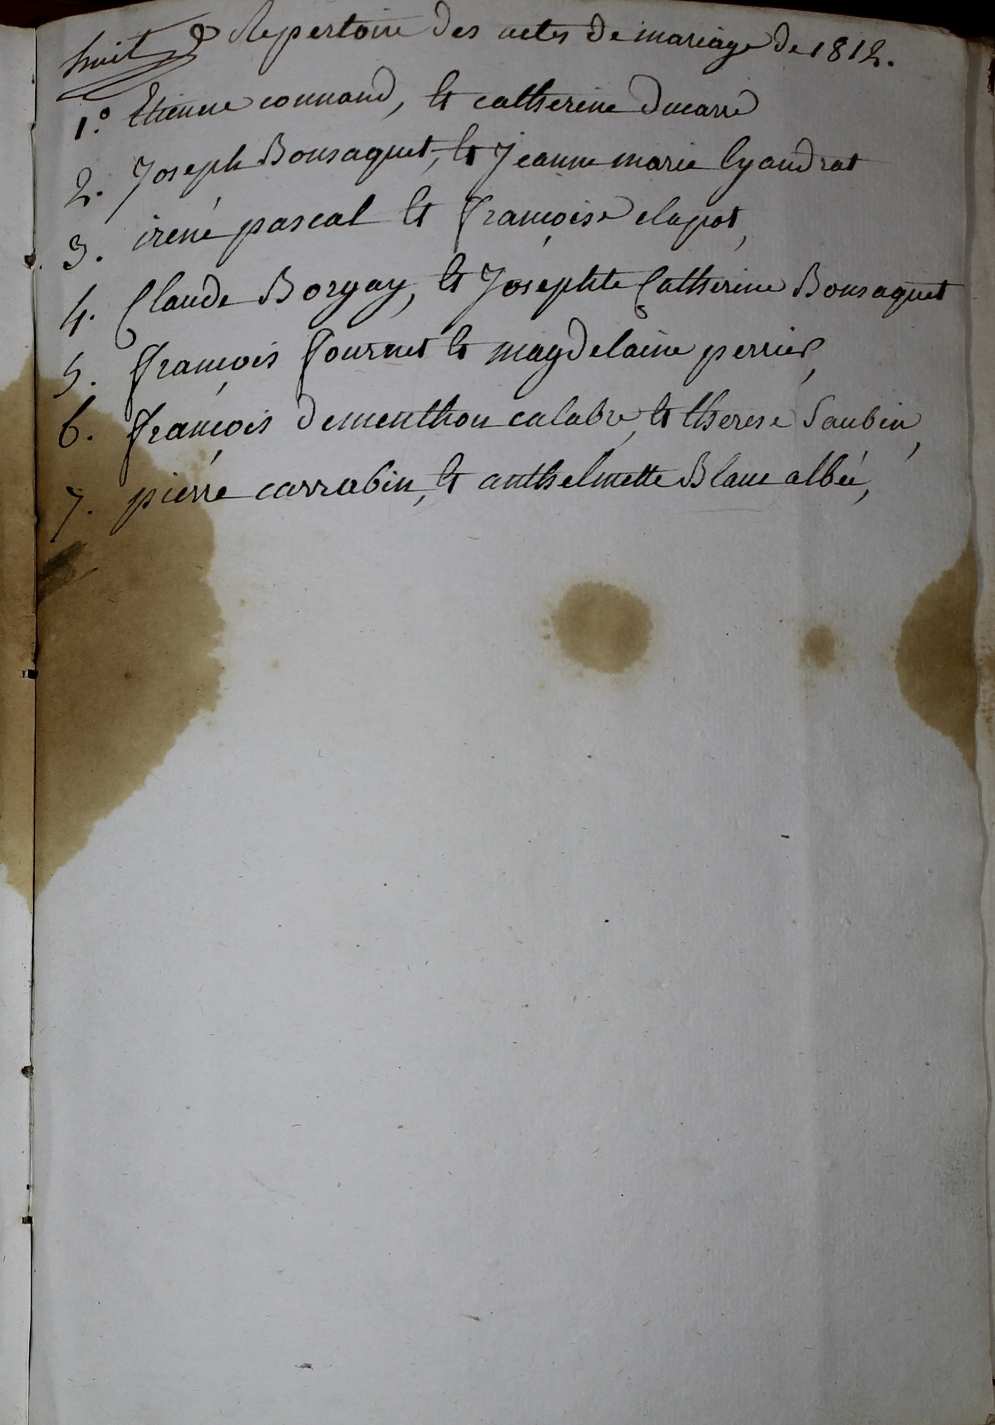 huit
Repertoire des actes de mariage de 1812.
1.° Etienne connand, et catherine ducarré
2. Joseph Bonsaquet, et Jeanne marie lyandrat
3. irené pascal et françoise clapot,
4. Claude Borgay, et Josephte Catherine Bonsaquet
5. françois fournet et magdelaine perrier,
6. françois dementhon calabre, et therese Saubin,
7. pierre carrabin, et anthelmette Blanc albée,